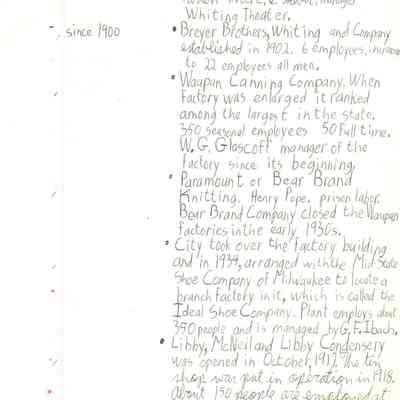 manager
Whiting Theater.
, since 1900
• Breyer Brothers, Whiting and Company
established in 1902. 6 employees, increase
to 22 employees all men.
• Waupan Canning Company. When
factory was enlarged it ranked
among the largest in the state.
350 seasonal employees 50 full time.
W. G. Gloscoff manager of the
factory since its beginning.
• Paramount or Bear Brand
Knitting. Henry Pope. prison labor.
Bear Brand Company closed the Waupan
factories in the early 1930s.
• City took over the factory building
and in 1934, arranged with the Mid State
Shoe Company of Milwaukee to locate a
branch factory in it, which is called the
Ideal Shoe Company. Plant employs about
350 people and is managed by G. F. Ibach.
• Libby, McNeil and Libby Condensery
was opened in October, 1917. The tin
shop was put in operation in 1918.
About 150 people are employed at